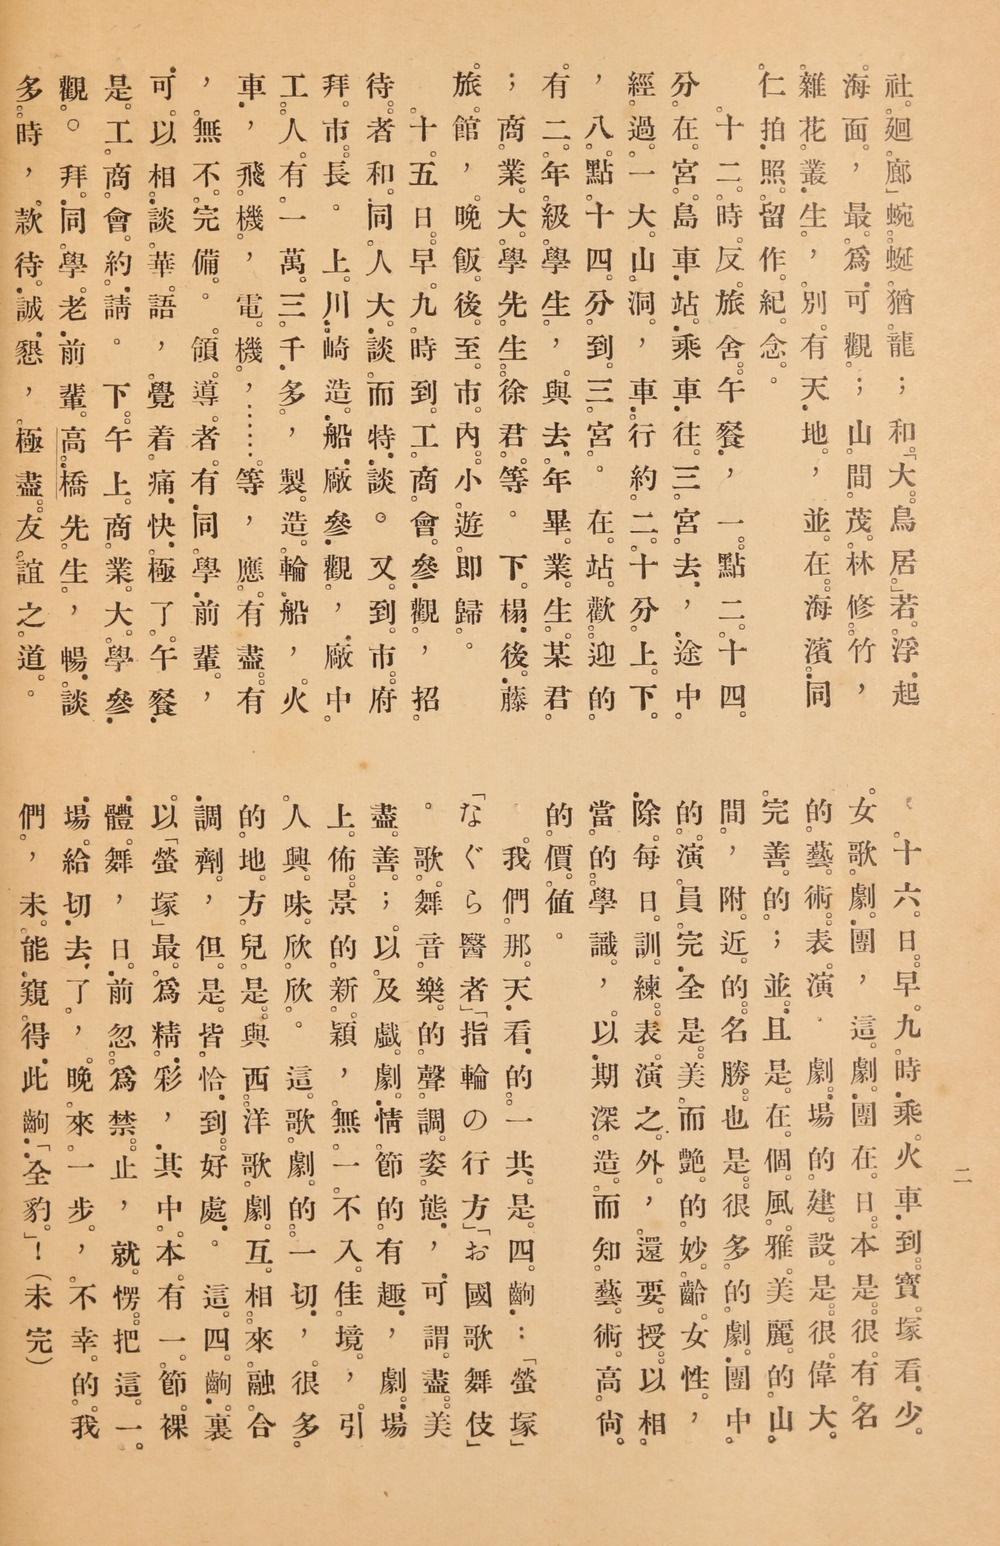 社廻廊」蜿蜒猶龍；和「大鳥居」若浮起
海面，最爲可觀；山間茂林修竹，
雜花叢生，別有天地，並在海濱同
仁拍照留作紀念。
十二時反旅舍午餐，一點二十四
分在宮島車站乘車往三宮去，途中
經過一大山洞，車行約二十分上下
，八點十四分到三宮。在站歡迎的
有二年級學生，與去年畢業生某君
；商業大學先生徐君等。下榻後藤
旅館，晚飯後至市內小遊即歸。
十五日早九時到工商會參觀，招
待者和同人大談而特談。又到市府
拜市長。上川崎造船廠參觀，廠中
工人有一萬三千多，製造輪船，火
車，飛機，電機，……等，應有盡有
，無不完備。領導者有同學前輩，
可以相談華語，覺着痛快極了午餐
是工商會約請。下午上商業大學參
觀。拜同學老前輩高橋先生，暢談
多時，款待誠懇，極盡友誼之道。
十六日早九時乘火車到寶塚看少
女歌劇團，這劇團在日本是很有名
的藝術表演．劇場的建設是很偉大
完善的；並且是在個風雅美麗的山
間，附近的名勝也是很多的劇團中
的演員完全是美而艷的妙齡女性，
除每日訓練表演之外，還要授以相
當的學識，以期深造而知藝術高尙
的價值。
我們那天看的一共是四齣：「螢塚」
「なぐら醫者」「指輪の行方」「お國歌舞伎」
。歌舞音樂的聲調姿態，可謂盡美
盡善；以及戲劇情節的有趣，劇場
上佈景的新穎，無一不入佳境，引
人興味欣欣。這歌劇的一切，很多
的地方兒是與西洋歌劇互相來融合
調劑，但是皆恰到好處。這四齣裏
以「螢塚」最爲精彩，其中本有一節裸
體舞，日前忽爲禁止，就愣把這一
場給切去了，晚來一步，不幸的我
們，未能窺得此齣「全豹」！（未完）
二